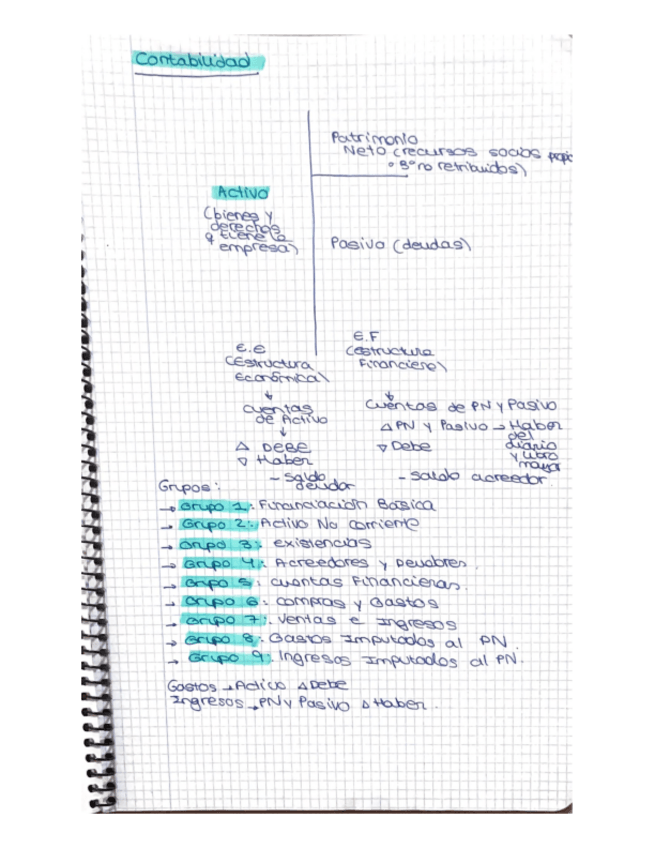 Contabilidad
Patrimonio
Neto (recursos socios propio
o Bº no retribuidos)
Activo
(bienes y
derechos
q tiene la
empresa)
Pasivo (deudas)
E.E
(Estructura
Económica)
E.F
(estructura
Financiera)
↓
cuentas
de Activo
↓
△ DEBE
▽ Haber
- Saldo
deudor
↓
Cuentas de PN y Pasivo
△ PN y Pasivo → Haber
del
diario
y libro
mayor
▽ Debe
- Saldo acreedor
Grupos:
→ Grupo 1: Financiación Básica
→ Grupo 2: Activo No corriente
→ Grupo 3: existencias
→ Grupo 4: Acreedores y Deudores.
→ Grupo 5: cuentas Financieras.
→ Grupo 6: compras y Gastos
→ Grupo 7: Ventas e Ingresos
→ Grupo 8: Gastos Imputados al PN.
→ Grupo 9: Ingresos Imputados al PN.
Gastos → Activo △ Debe
Ingresos → PN y Pasivo △ Haber.